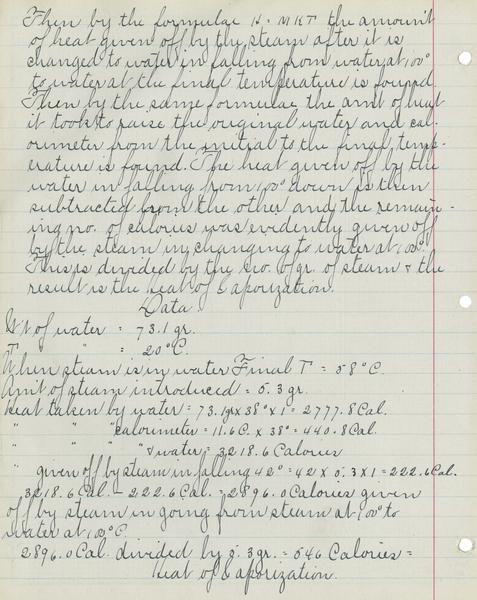 Then by the formulae H = MKT the amount
of heat given off by the steam after it is
changed to water in falling from water at 100°
to water at the final temperature is found.
Then by the same formulae the amt of heat
it took to raise the original water and cal-
orimeter from the initial to the final temp-
erature is found. The heat given off by the
water in falling from 100° down is then
subtracted from the other and the remain-
ing no. of calories was evidently given off
by the steam in changing to water at 100°.
This is divided by the no. of gr. of steam & the
result is the heat of Vaporization.
Data
Wt of water = 73.1 gr.
T " " = 20°C.
When steam is in water Final T = 58°C.
Amt of steam introduced = 5.3 gr.
Heat taken by water = 73.1gr x 38° x 1 = 2777.8 Cal.
" " " calorimeter = 11.6 C. x 38° = 440.8 Cal.
" " " & water = 3218.6 Calories
" given off by steam in falling 42° = 42 x 5.3 x 1 = 222.6 Cal.
3218.6 Cal. - 222.6 Cal. = 2896.0 Calories given
off by steam in going from steam at 100° to
water at 100°C.
2896.0 Cal. divided by 5.3gr. = 546 Calories =
Heat of Vaporization.